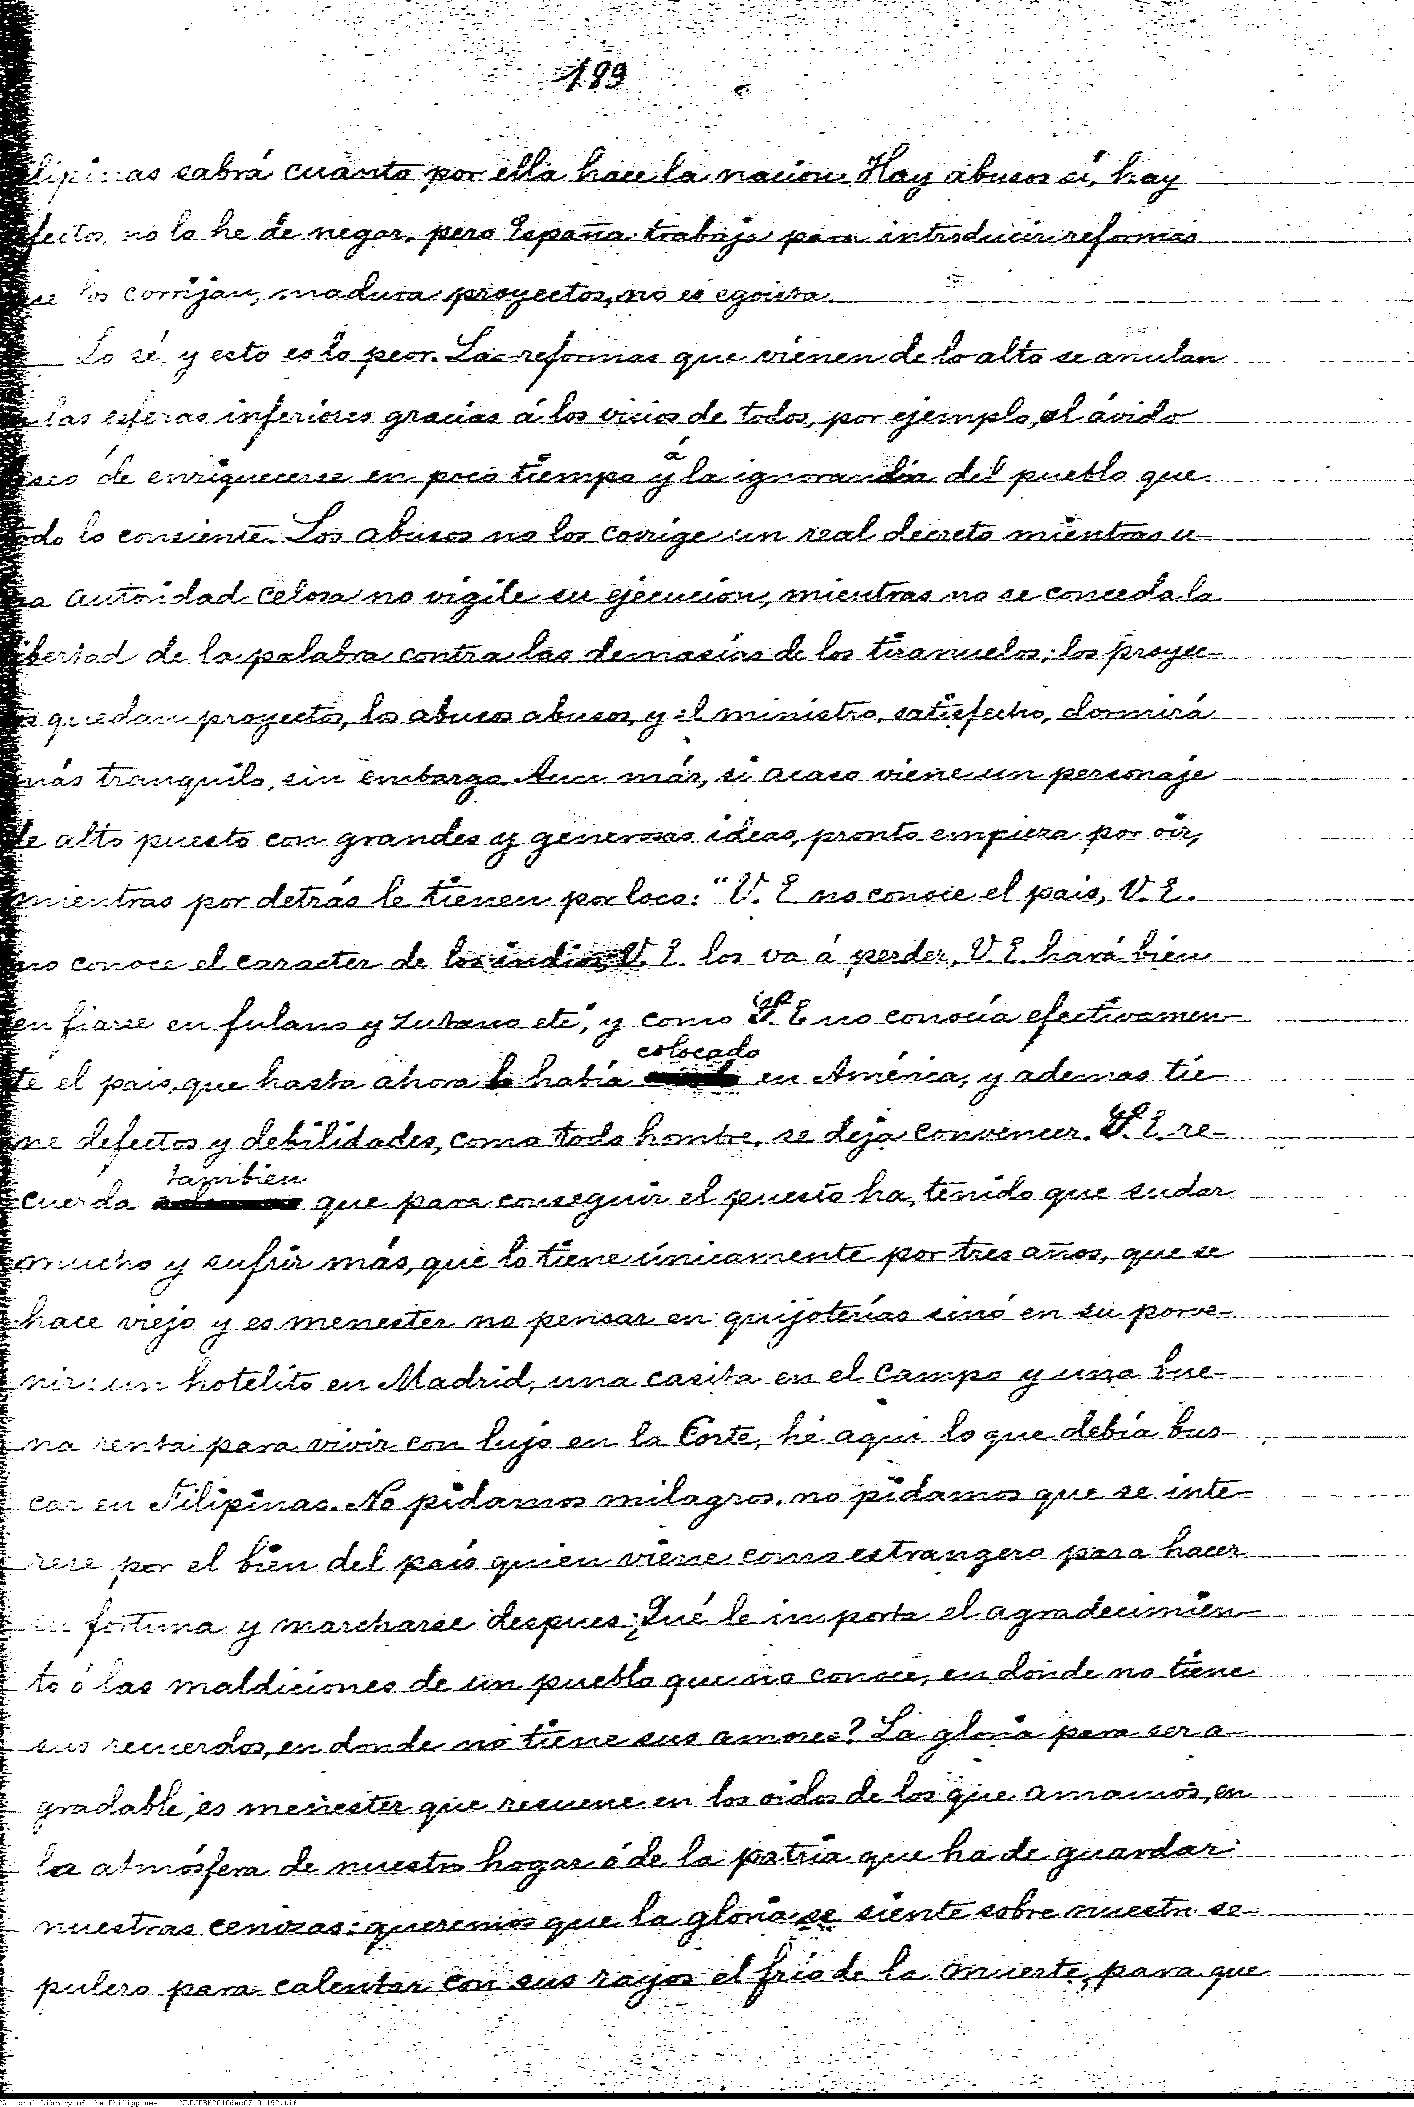 189
ilipinas sabrá cuanto por ella hace la nacion. Hay abusos sí, hay
fectos, no lo he de negar, pero España trabaja para introducir reformas
ue los corrijan, madura proyectos, no es egoista.
— Lo sé y esto es lo peor. Las reformas que vienen de lo alto se anulan
n las esferas inferiores gracias á los vicios de todos, por ejemplo, al ávido
seo de enriquecerse en poco tiempo y á la ignorancia del pueblo que
odo lo consiente. Los abusos no los corrige un real decreto mientras u-
na autoridad celosa no vigile su ejecucion, mientras no se conceda la
ibertad de la palabra contra las demasías de los tiranuelos; los proyec-
os quedan proyectos, los abusos abusos, y el ministro, satisfecho, dormirá
más tranquilo, sin embargo. Aun más, si acaso viene un personaje
de alto puesto con grandes y generosas ideas, pronto empieza por oir,
mientras por detrás le tienen por loco: "V. E. no conoce el pais, V. E.
no conoce el caracter de los indios, V. E. los va á perder, V. E. hará bien
en fiarse en fulano y zutano etc", y como S. E. no conocía efectivamen-
te el pais, que hasta ahora lo había colocado en América, y ademas tie-
ne defectos y debilidades, como todo hombre, se deja convencer. S. E. re-
cuerda tambien que para conseguir el puesto ha tenido que sudar
mucho y sufrir más, que lo tiene únicamente por tres años, que se
hace viejo y es menester no pensar en quijoterías sinó en su porve-
nir: un hotelito en Madrid, una casita en el campo y una bue-
na renta para vivir con lujo en la Corte, hé aqui lo que debía bus-
car en Filipinas. No pidamos milagros, no pidamos que se inte-
rese por el bien del país quien viene como estrangero para hacer
su fortuna y marcharse despues. ¿Qué le importa el agradecimien-
to ó las maldiciones de un pueblo que no conoce, en donde no tiene
sus recuerdos, en donde no tiene sus amores? La gloria para ser a-
gradable, es menester que resuene en los oidos de los que amamos, en
la atmósfera de nuestro hogar ó de la patria que ha de guardar
nuestras cenizas: queremos que la gloria se siente sobre nuestro se-
pulcro para calentar con sus rayos el frío de la muerte, para que